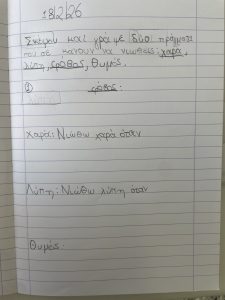 18/2/26
Σκέψου και γράψε δύο πράγματα
που σε κάνουν να νιώθεις: χαρά,
λύπη, φόβος, θυμός.
φόβος:
Χαρά: Νιώθω χαρά όταν
Λύπη: Νιώθω λύπη όταν
Θυμός: